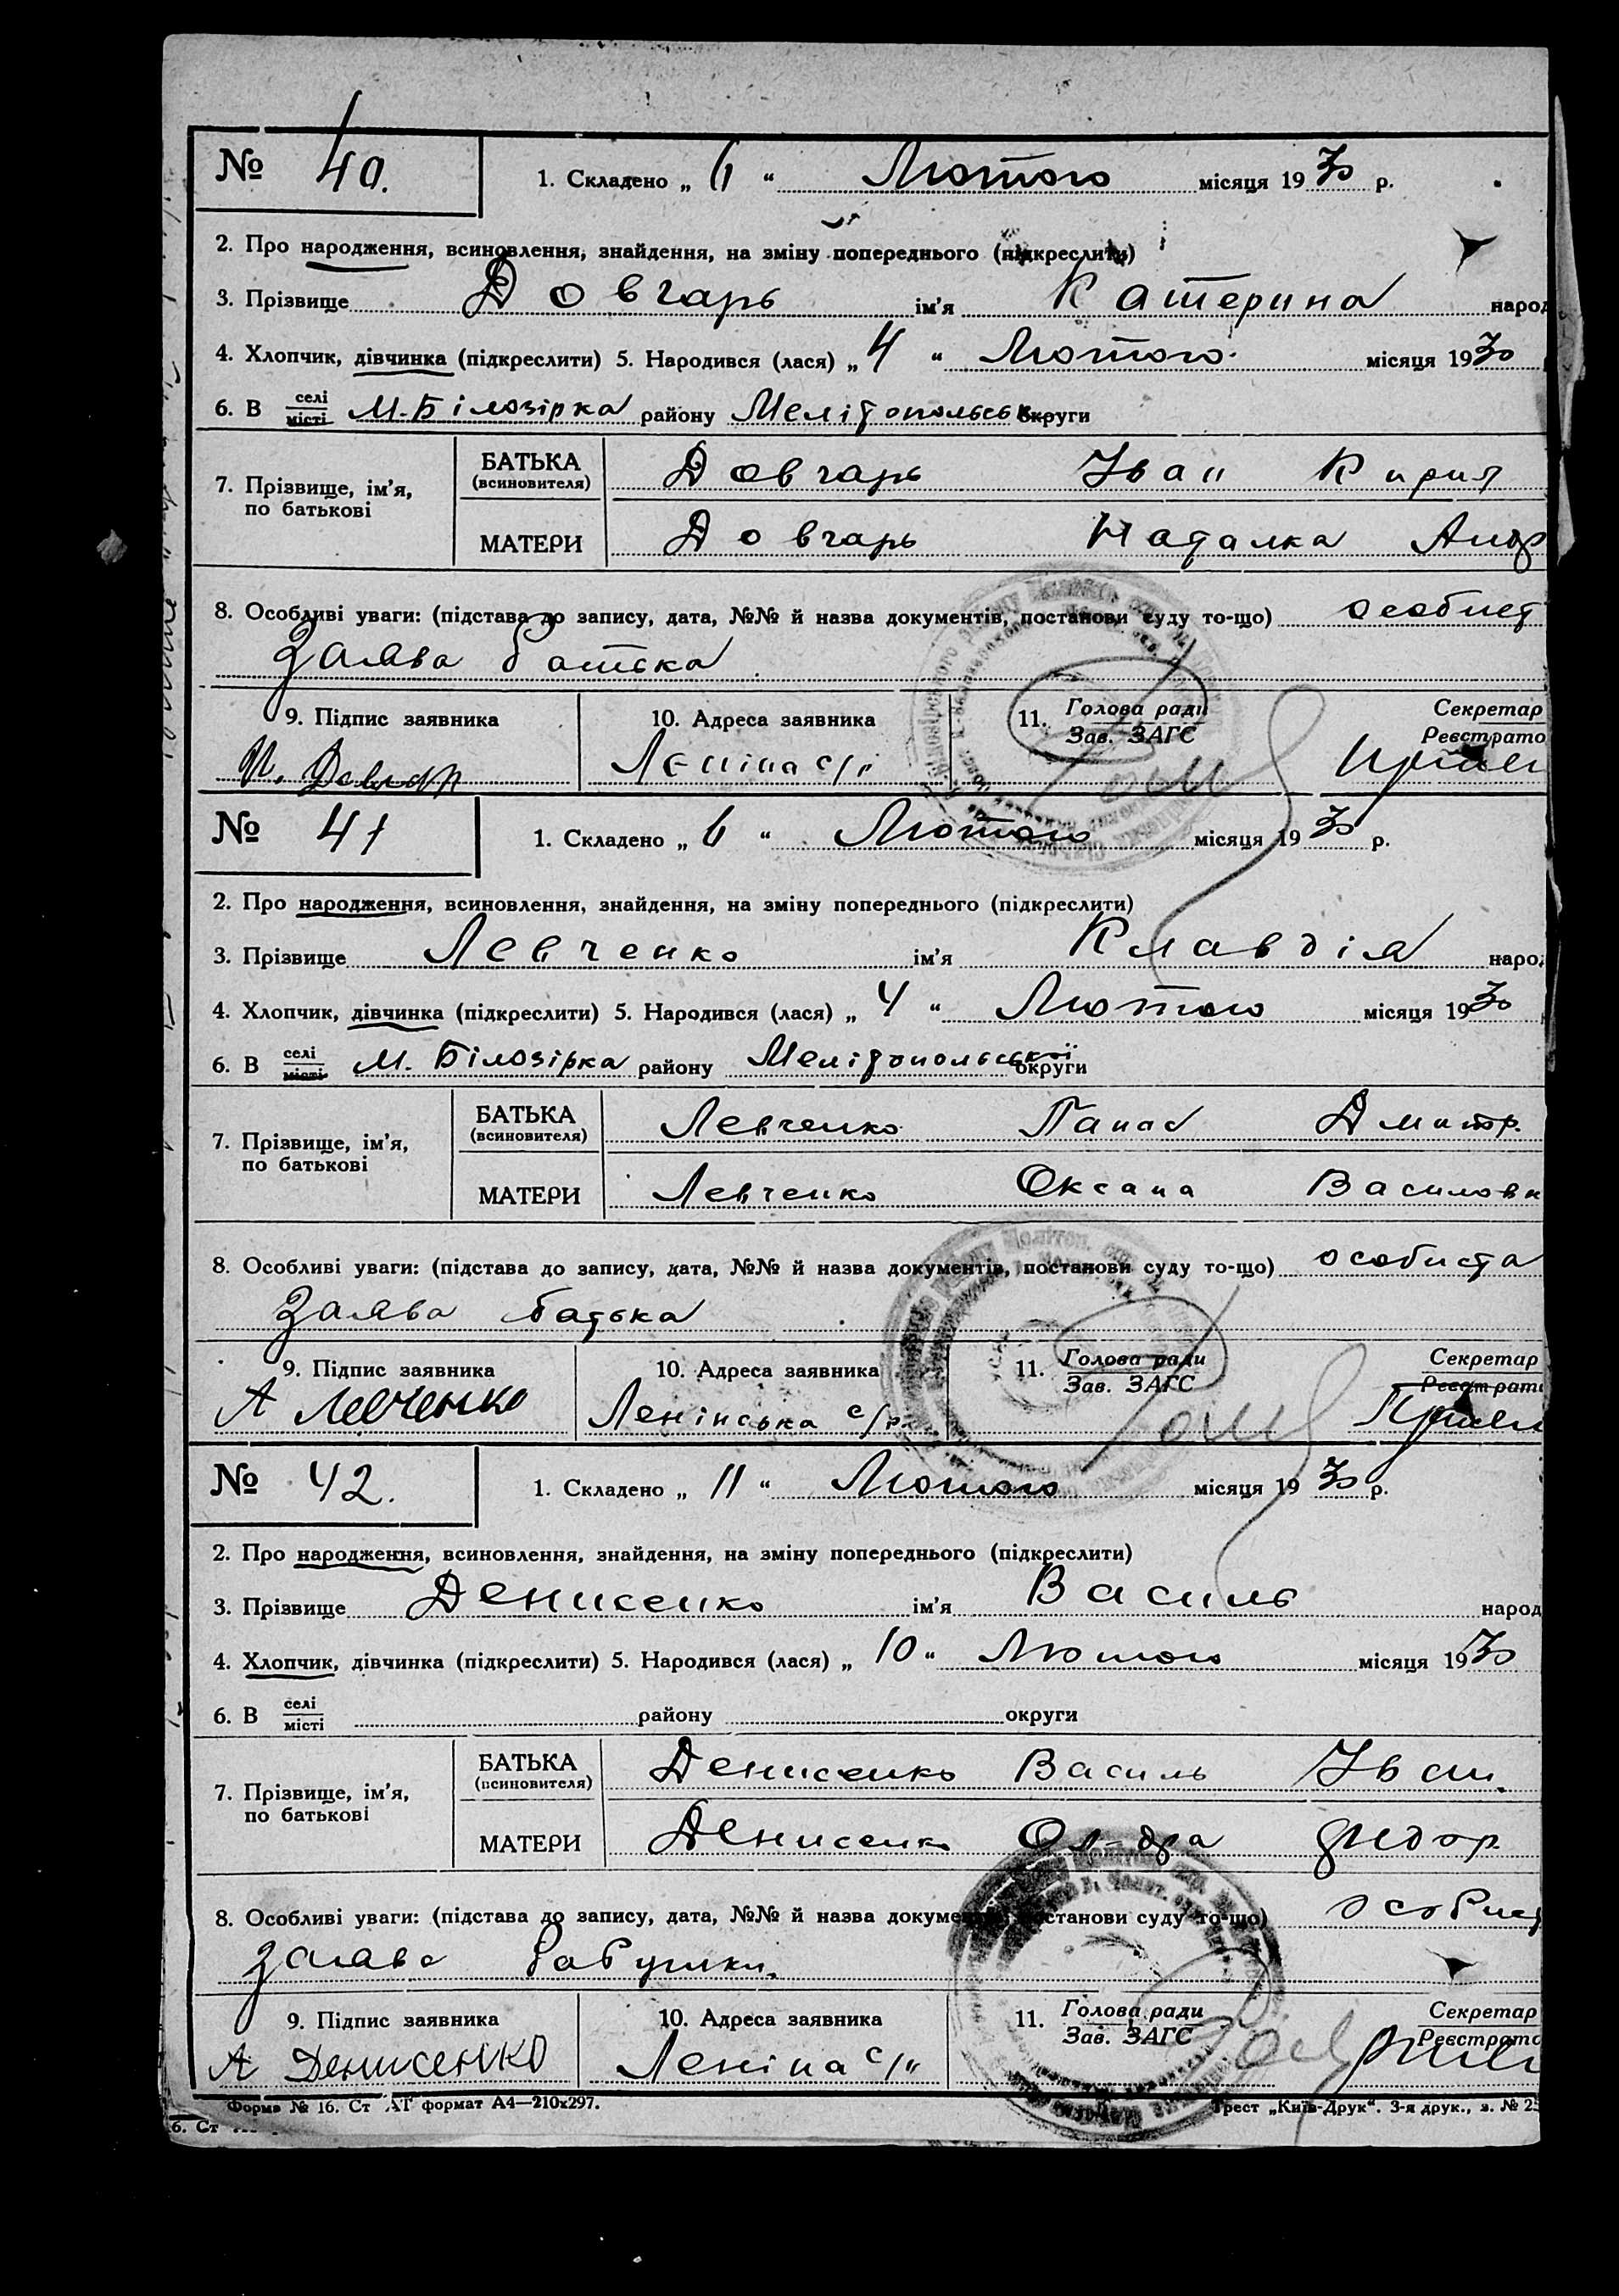 № 40. 1. Складено „ 6 “ Лютого місяця 1930 р.
2. Про народження, всиновлення, знайдення, на зміну попереднього (підкреслити)
3. Прізвище Довгарь ім'я Катерина народ
4. Хлопчик, дівчинка (підкреслити) 5. Народився (лася) „ 4 “ Лютого місяця 1930
6. В селі місті М-Білозірка району Мелітопольськ округи
7. Прізвище, ім'я, по батькові БАТЬКА (всиновителя) Довгарь Іван Кирил
МАТЕРИ Довгарь Наталка Андр
8. Особливі уваги: (підстава до запису, дата, №№ й назва документів, постанови суду то-що) особист
Заява батька
9. Підпис заявника 10. Адреса заявника 11. Голова ради Зав. ЗАГС Секретар Реєстрато
Леніна с/р
№ 41 1. Складено „ 6 “ Лютого місяця 1930 р.
2. Про народження, всиновлення, знайдення, на зміну попереднього (підкреслити)
3. Прізвище Левченко ім'я Клавдія народ
4. Хлопчик, дівчинка (підкреслити) 5. Народився (лася) „ 4 “ Лютого місяця 1930
6. В селі місті М. Білозірка району Мелітопольської округи
7. Прізвище, ім'я, по батькові БАТЬКА (всиновителя) Левченко Панас Дмитр.
МАТЕРИ Левченко Оксана Василовн
8. Особливі уваги: (підстава до запису, дата, №№ й назва документів, постанови суду то-що) особиста
Заява батька
9. Підпис заявника 10. Адреса заявника 11. Голова ради Зав. ЗАГС Секретар Реєстрато
А Левченко Ленінська с/р.
№ 42. 1. Складено „ 11 “ Лютого місяця 1930 р.
2. Про народження, всиновлення, знайдення, на зміну попереднього (підкреслити)
3. Прізвище Денисенко ім'я Василь народ
4. Хлопчик, дівчинка (підкреслити) 5. Народився (лася) „ 10 “ Лютого місяця 1930
6. В селі місті району округи
7. Прізвище, ім'я, по батькові БАТЬКА (всиновителя) Денисенко Василь Іван.
МАТЕРИ Денисенко Ол-дра
8. Особливі уваги: (підстава до запису, дата, №№ й назва документів, постанови суду то-що) особист
Заява бабушки.
9. Підпис заявника 10. Адреса заявника 11. Голова ради Зав. ЗАГС Секретар Реєстрато
А Денисенко Леніна с/р
Форма № 16. Ст АТ формат А4—210х297. Трест „Київ-Друк“. 3-я друк., з. № 25
6. Ст